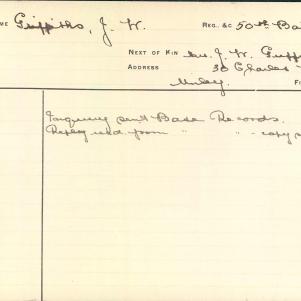 ME Griffiths, J. W. REG. &C 50th Ba
NEXT OF KIN Mrs. J. W. Griff
ADDRESS 30 Charles
F
Inquiry sent Base Records.
Reply recd from " " - copy